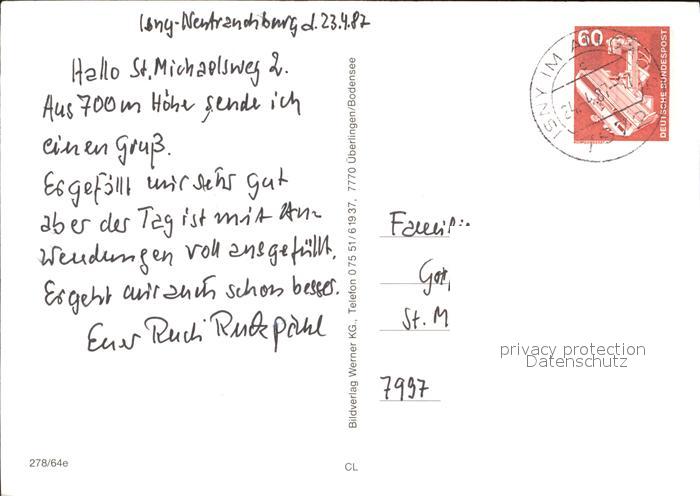 Isny-Neutrauchburg d. 23.4.87
Hallo St. Michaelsweg 2.
Aus 700m Höhe sende ich
einen Gruß.
Es gefällt mir sehr gut
aber der Tag ist mit An-
wendungen voll ausgefüllt.
Es geht mir auch schon besser.
Euer Rudi
Bildverlag Werner KG., Telefon 0 75 51/6 19 37, 7770 Überlingen/Bodensee
60
DEUTSCHE BUNDESPOST
ISNY IM
24.4.87
7972
Famil
St. M
7997
privacy protection
Datenschutz
278/64e
CL